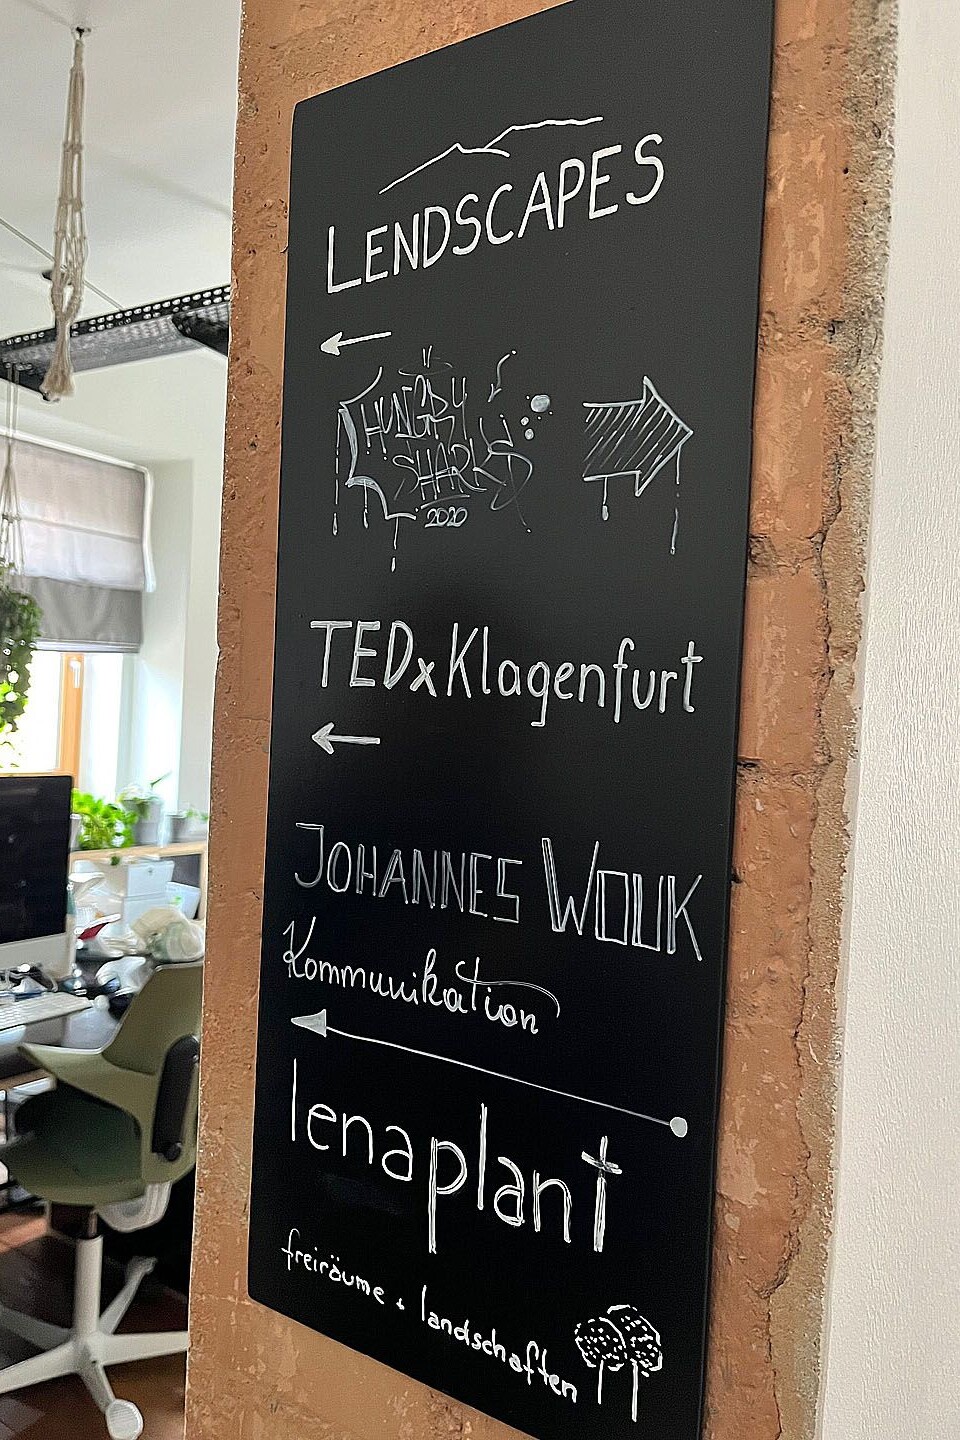 LENDSCAPES
HUNGRY
SHARKS
2020
TEDxKlagenfurt
JOHANNES WOUK
Kommunikation
lenaplant
freiräume + landschaften